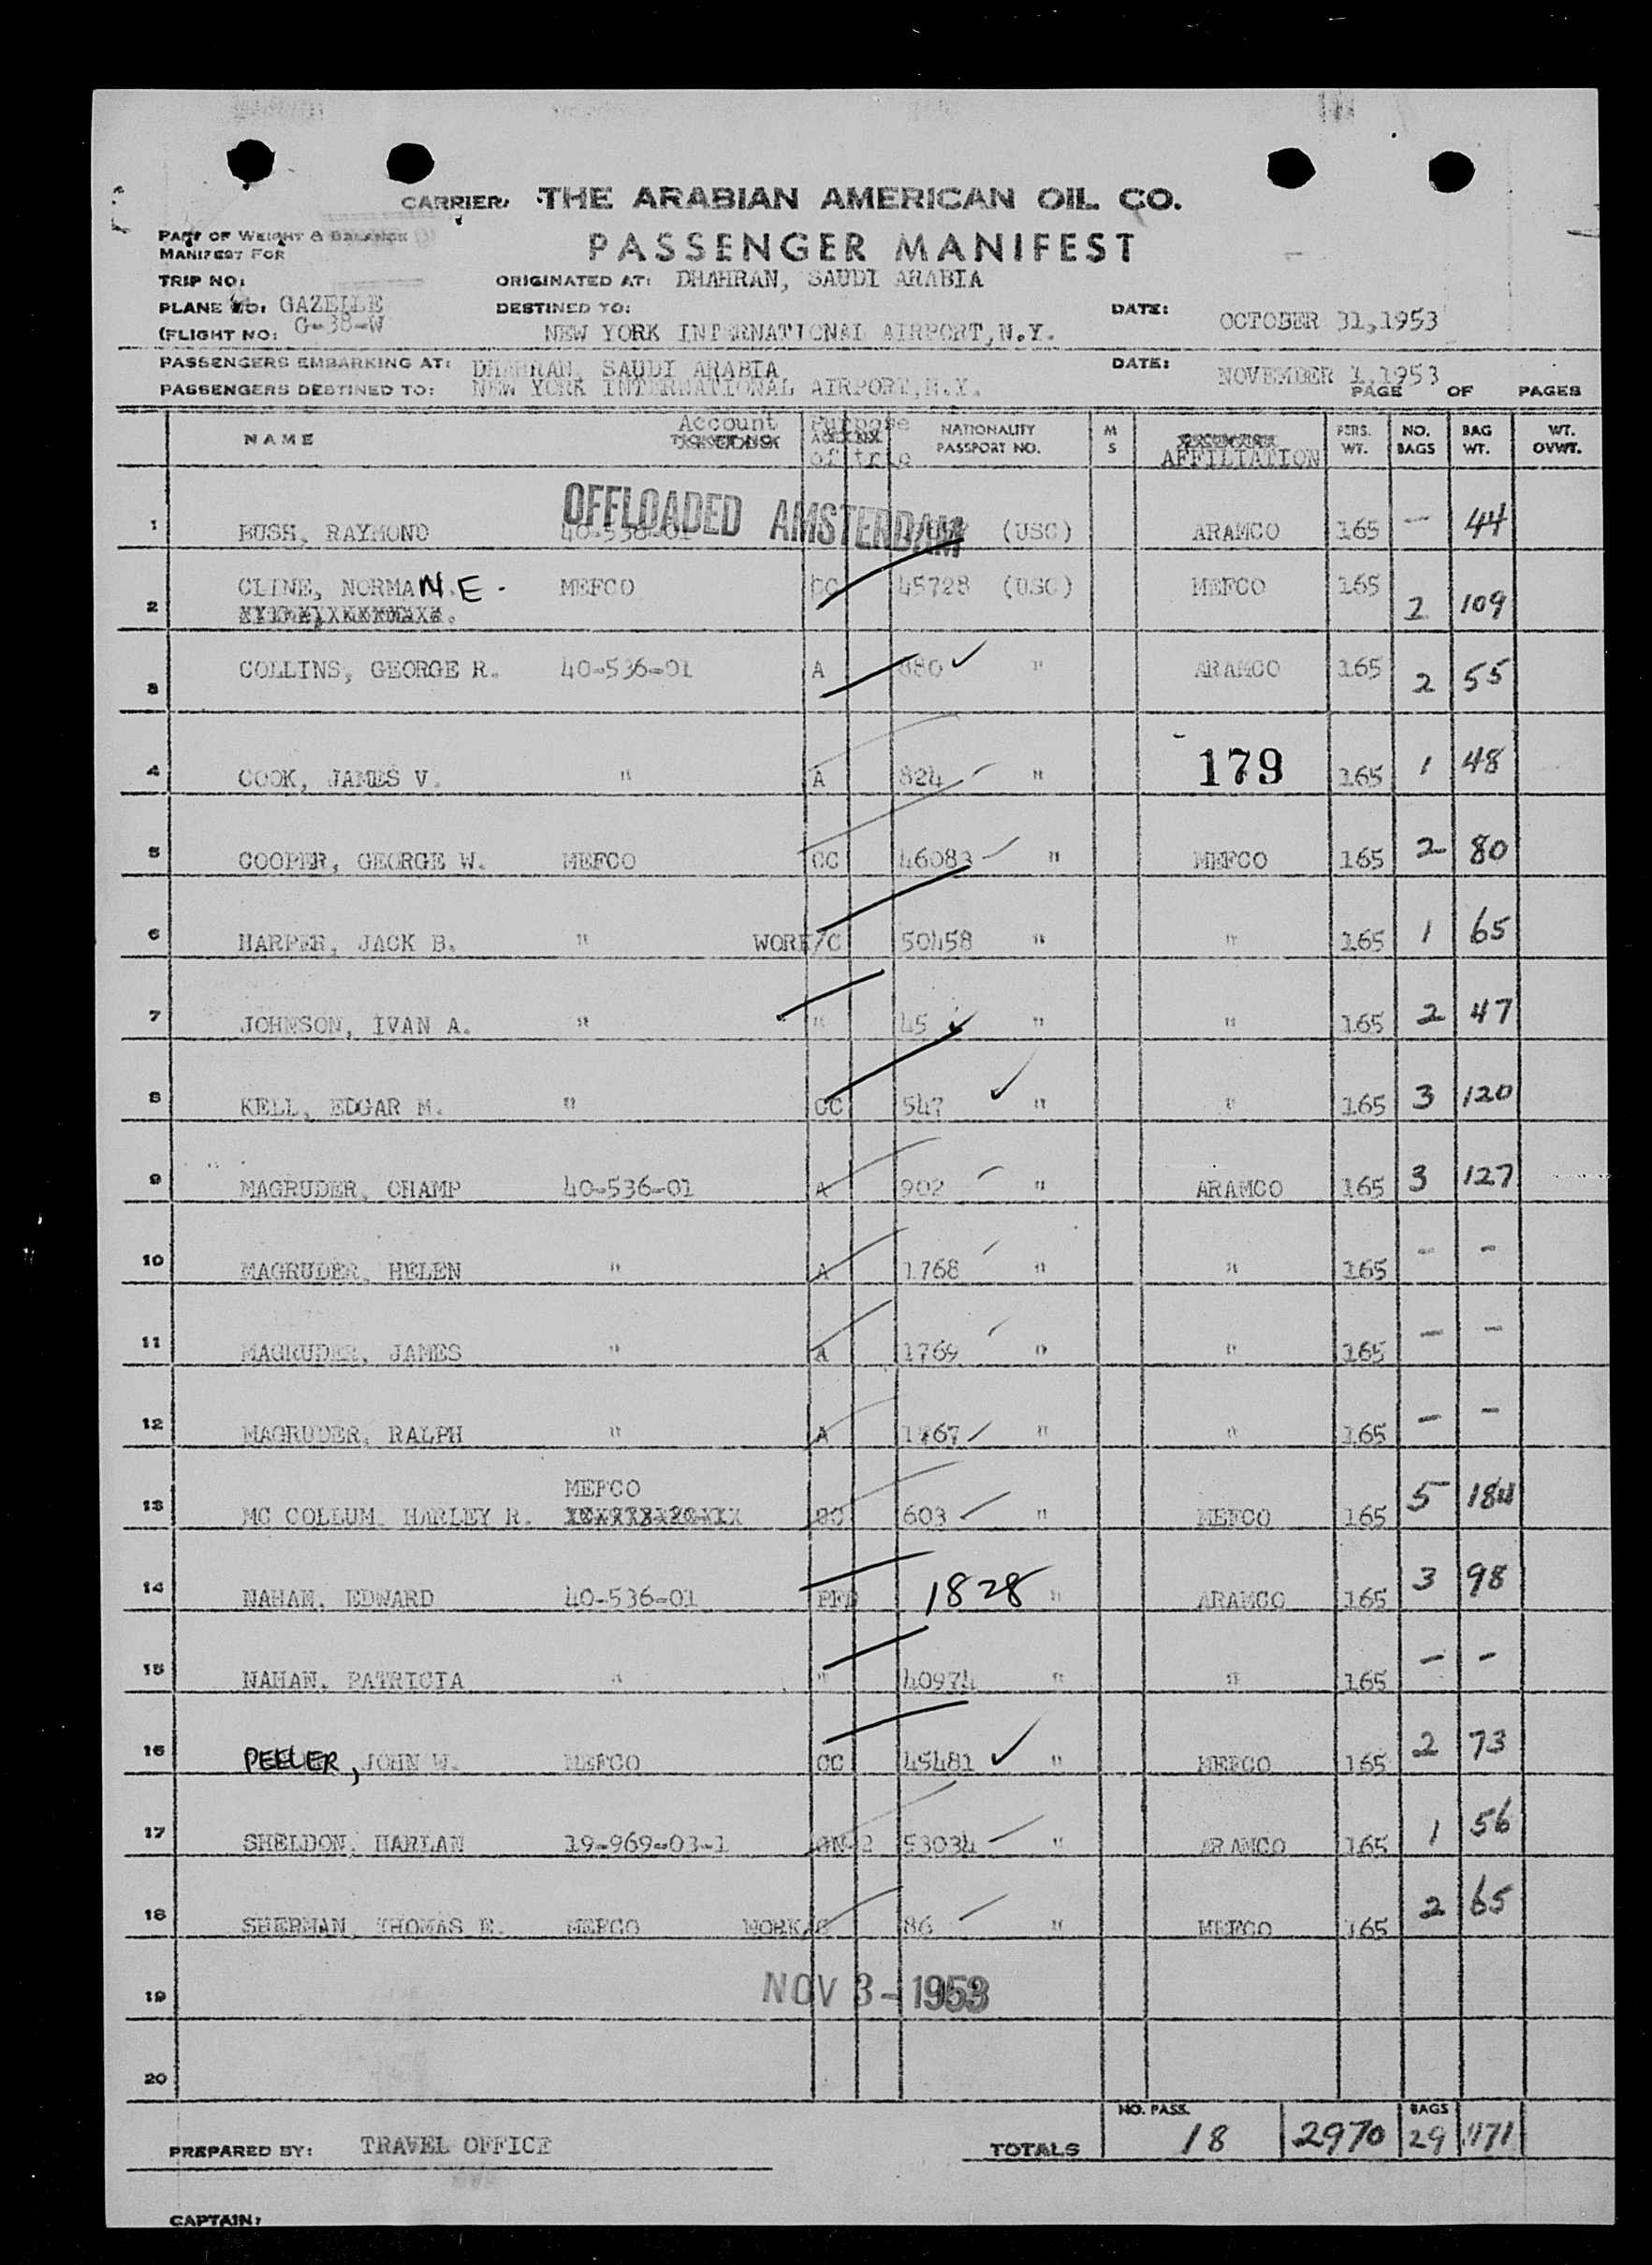 CARRIER: THE ARABIAN AMERICAN OIL CO.
PART OF WEIGHT & BALANCE
MANIFEST FOR
PASSENGER MANIFEST
TRIP NO:
ORIGINATED AT: DHAHRAN, SAUDI ARABIA
PLANE NO: GAZELLE
DESTINED TO:
DATE: OCTOBER 31,1953
(FLIGHT NO: G-38-W
NEW YORK INTERNATIONAL AIRPORT,N.Y.
PASSENGERS EMBARKING AT: DHAHRAN, SAUDI ARABIA
DATE: NOVEMBER 1,1953
PASSENGERS DESTINED TO: NEW YORK INTERNATIONAL AIRPORT,N.Y.
PAGE OF PAGES
NAME Account Purpose of trip NATIONALITY PASSPORT NO. M S AFFILIATION PERS. WT. NO. BAGS BAG WT. WT. OVWT.
OFFLOADED AMSTERDAM
1 BUSH, RAYMOND 40-536-01 (USC) ARAMCO 165 - 44
2 CLINE, NORMAN E. MEFCO CC 45728 (USC) MEFCO 165 2 109
3 COLLINS, GEORGE R. 40-536-01 A 880 " ARAMCO 165 2 55
4 COOK, JAMES V. " A 824 " 179 165 1 48
5 COOPER, GEORGE W. MEFCO CC 46083 " MEFCO 165 2 80
6 HARPER, JACK B. " WORK/C 50458 " " 165 1 65
7 JOHNSON, IVAN A. " " 45 " " 165 2 47
8 KELL, EDGAR M. " CC 547 " " 165 3 120
9 MAGRUDER, CHAMP 40-536-01 A 902 " ARAMCO 165 3 127
10 MAGRUDER, HELEN " A 1768 " " 165 - -
11 MAGRUDER, JAMES " A 1769 " " 165 - -
12 MAGRUDER, RALPH " A 1767 " " 165 - -
13 MC COLLUM, HARLEY R. MEFCO CC 603 " MEFCO 165 5 184
14 NAHAN, EDWARD 40-536-01 PFD 1828 " ARAMCO 165 3 98
15 NAHAN, PATRICIA " " 40974 " " 165 - -
16 PEELER, JOHN W. MEFCO CC 45481 " MEFCO 165 2 73
17 SHELDON, HARLAN 19-969-03-1 53034 " ARAMCO 165 1 56
18 SHERMAN, THOMAS E. MEFCO WORK/C 86 " MEFCO 165 2 65
19 NOV 3 - 1953
20
PREPARED BY: TRAVEL OFFICE
TOTALS NO. PASS. 18 2970 BAGS 29 1171
CAPTAIN: